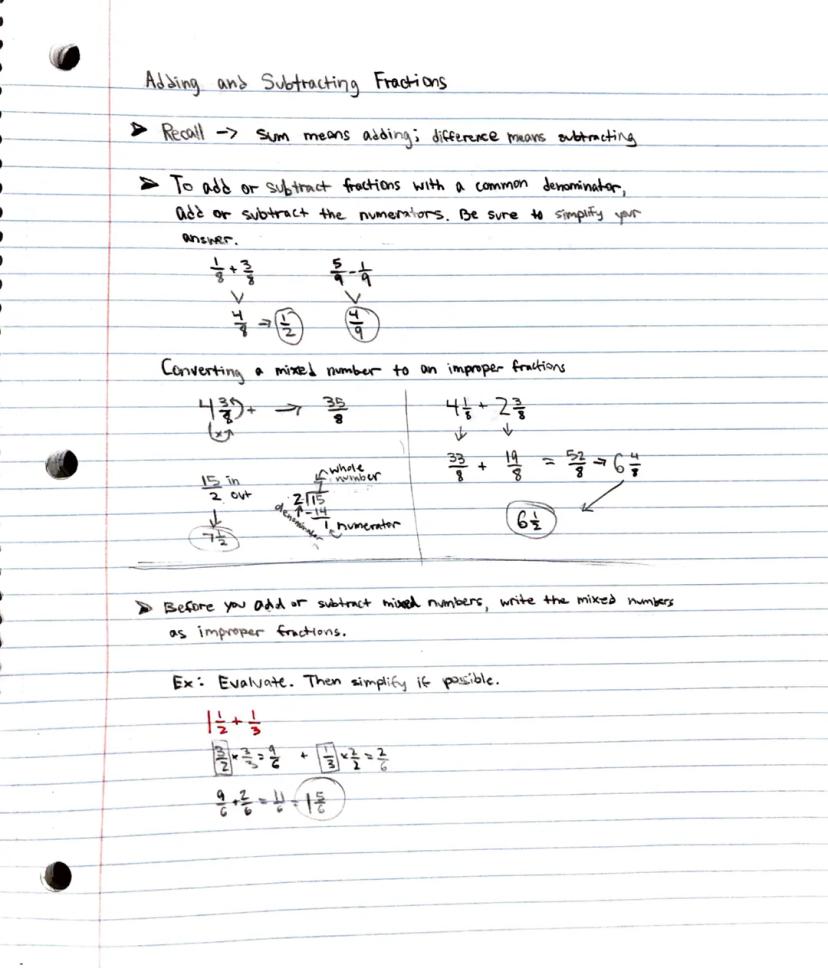 Adding and Subtracting Fractions
➤ Recall -> Sum means adding; difference means subtracting
➤ To add or subtract fractions with a common denominator,
add or subtract the numerators. Be sure to simplify your
answer.
1/8 + 3/8    5/9 - 1/9
4/8 → 1/2    4/9
Converting a mixed number to an improper fractions
4 3/8 + → 35/8
x
15/2 in out
7 1/2
whole number
7
2√15
-14
1 numerator
denominator
4 1/8 + 2 3/8
33/8 + 19/8 = 52/8 → 6 4/8
6 1/2
➤ Before you add or subtract mixed numbers, write the mixed numbers
as improper fractions.
Ex: Evaluate. Then simplify if possible.
1 1/2 + 1/3
3/2 × 3/3 = 9/6 + 1/3 × 2/2 = 2/6
9/6 + 2/6 = 11/6 = 1 5/6